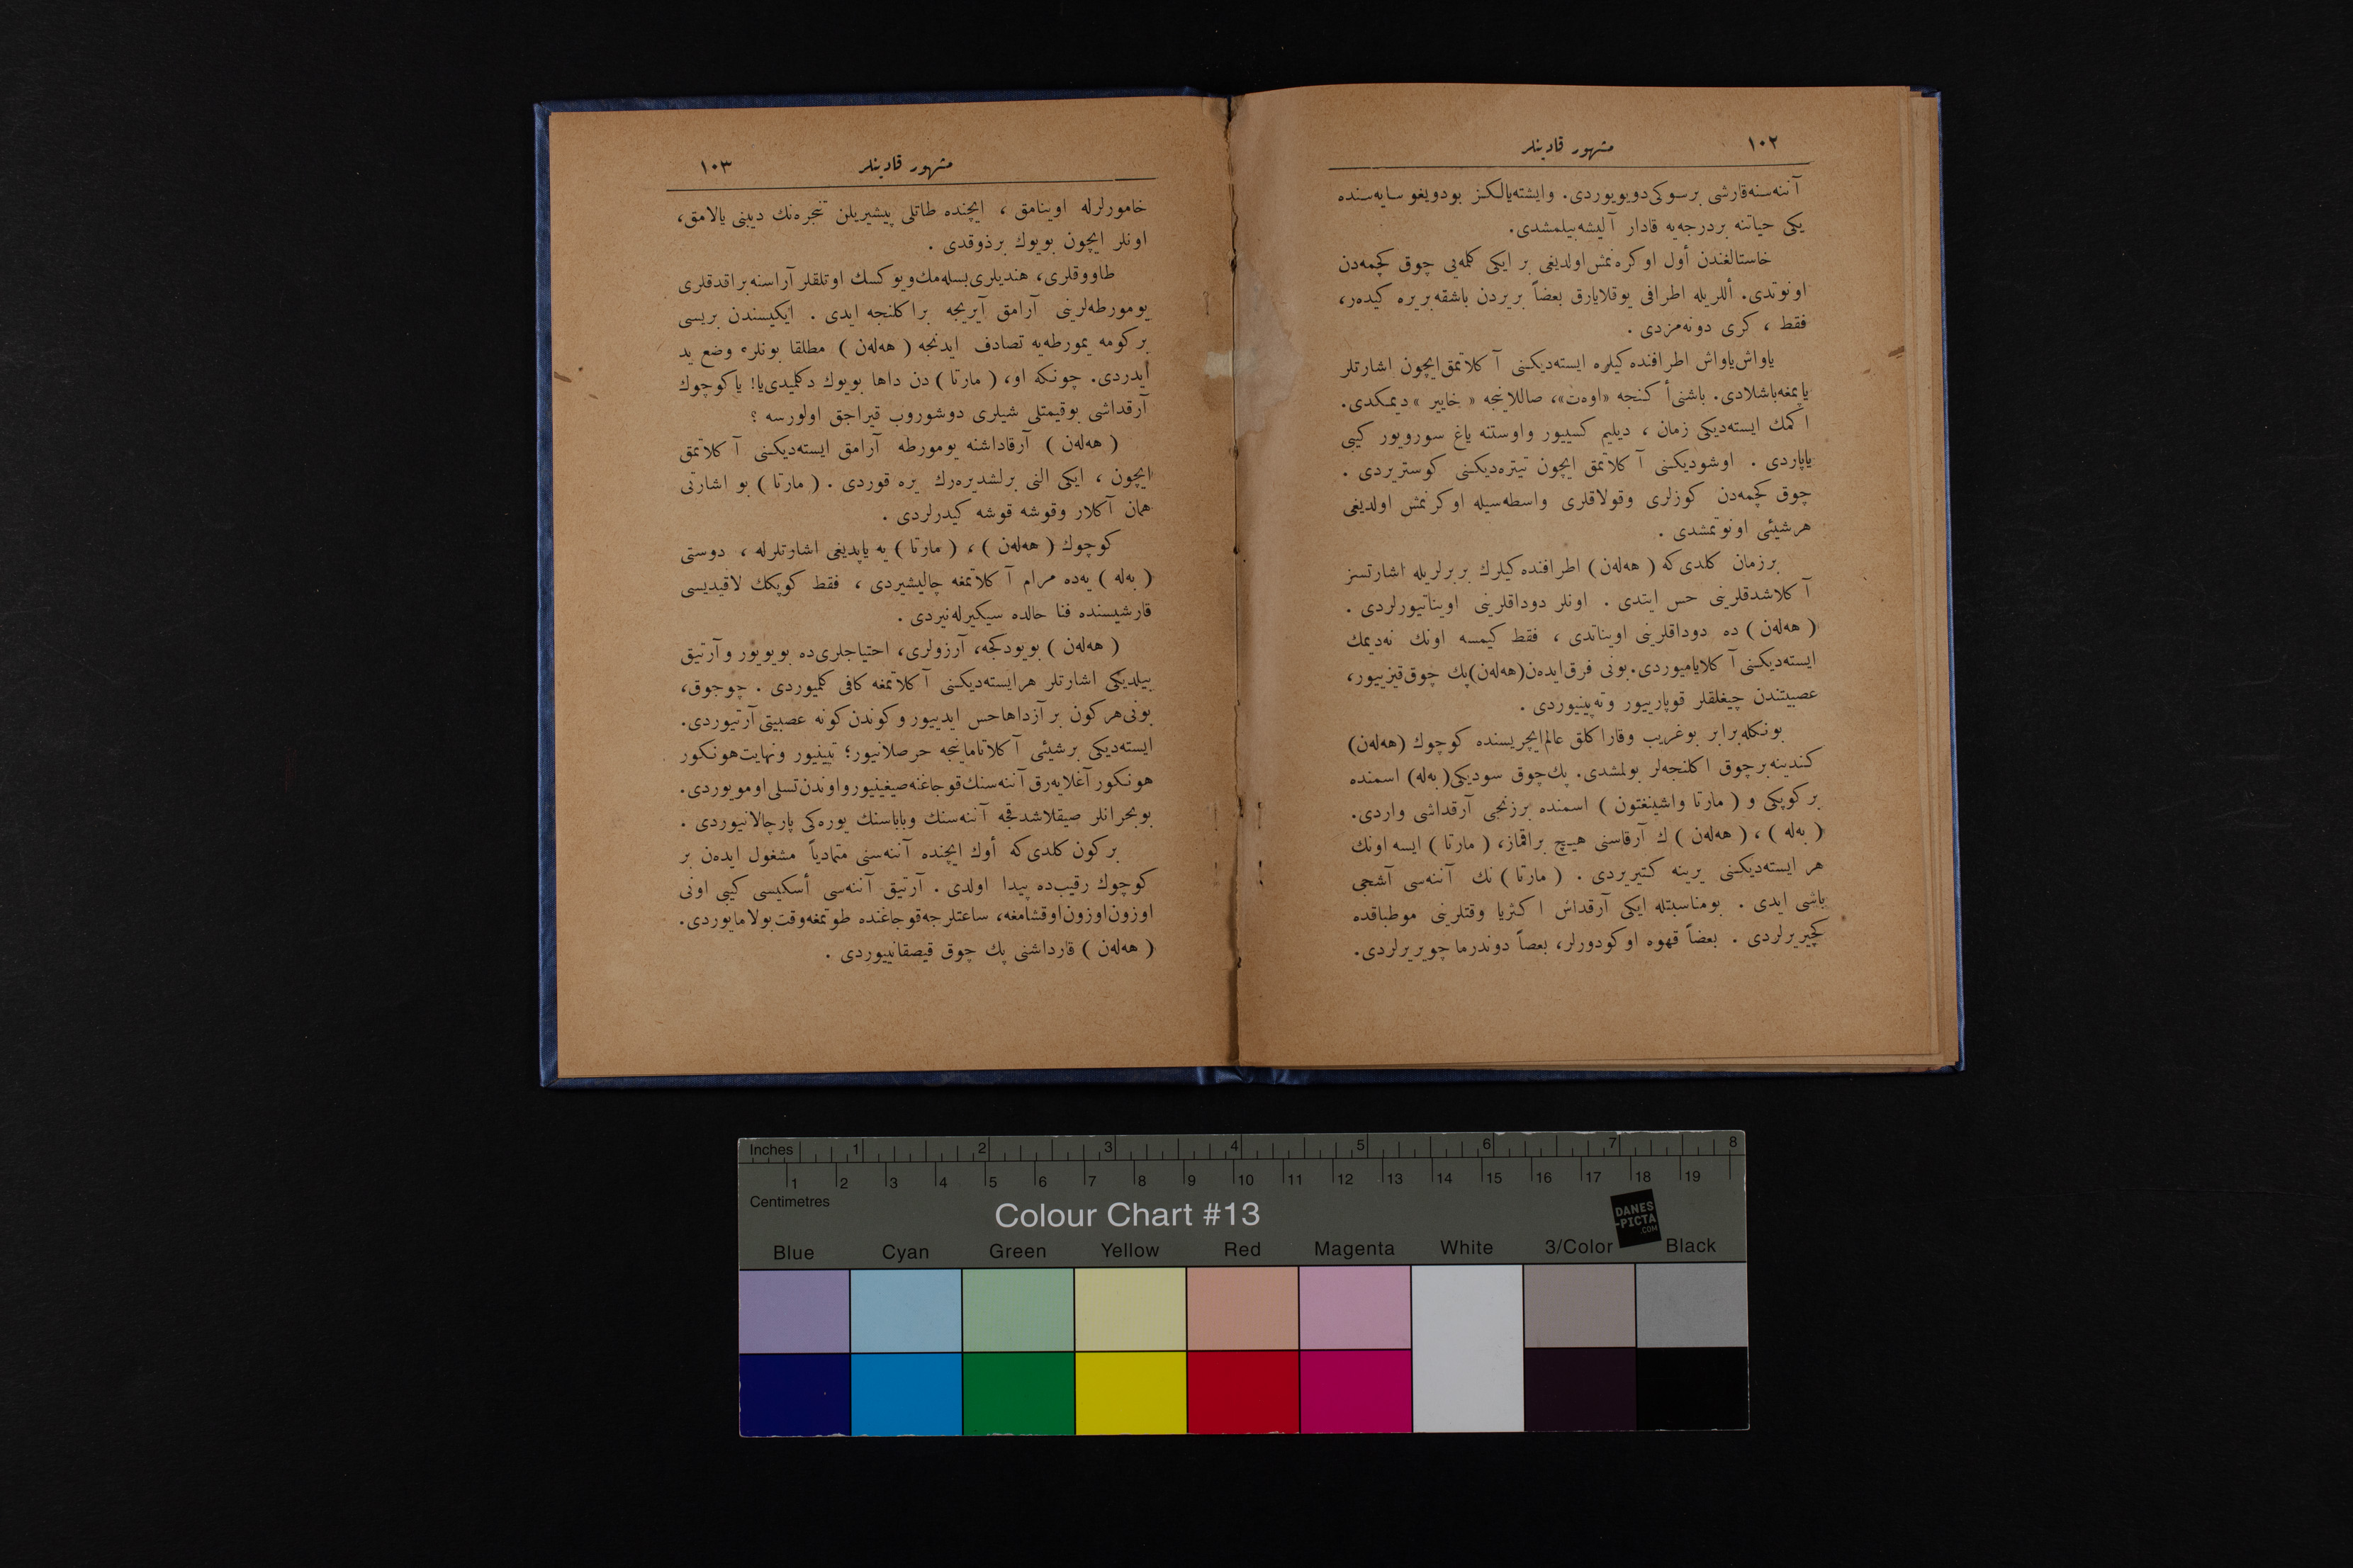 ١٠٢
مشهور قادینلر
آننه‌سنه قارشی برسوكی دویویوردی. وایشته یالكز بودویغو سایه‌سنده
یكی حیاتنه بردرجه‌یه قادار آلیشه‌بیلمشدی.
خاستالغندن أول اوكره‌نمش اولدیغی بر ایكی كلمه‌یی چوق كچمه‌دن
اونوتدی. أللریله اطرافی یوقلایارق بعضاً بریردن باشقه بریره كیده‌ر،
فقط ، كری دونه‌مزدی .
یاواش یاواش اطرافنده‌كیلره ایسته‌دیكنی آكلاتمق ایچون اشارتلر
یاپمغه باشلادی. باشنی أكنجه «اوه‌ت»، صاللاینجه « خاییر » دیمكدی.
اكمك ایسته‌دیكی زمان ، دیلیم كسییور واوستنه یاغ سورویور كیبی
یاپاردی . اوشودیكنی آكلاتمق ایچون تیتره‌دیكنی كوستریردی .
چوق كچمه‌دن كوزلری وقولاقلری واسطه‌سیله اوكرنمش اولدیغی
هرشیئی اونوتمشدی .
برزمان كلدی كه (هه‌له‌ن) اطرافنده‌كیلرك بربرلریله اشارتسز
آكلاشدقلرینی حس ایتدی . اونلر دوداقلرینی اویناتیورلردی .
( هه‌له‌ن ) ده دوداقلرینی اویناتدی ، فقط كیمسه اونك نه‌دیمك
ایسته‌دیكنی آكلایامیوردی. بونی فرق ایده‌ن (هه‌له‌ن) پك چوق قیزییور،
عصبیتندن چیغلقلر قوپارییور وته‌پینیوردی .
بونكله برابر بوغریب وقاراكلق عالم ایچریسنده كوچوك (هه‌له‌ن)
كندینه برچوق اكلنجه‌لر بولمشدی. پك چوق سودیكی (به‌له) اسمنده
بر كوپكی و ( مارتا واشینغتون ) اسمنده برزنجی آرقداشی واردی.
( به‌له ) ، ( هه‌له‌ن ) ك آرقاسنی هیچ براقماز، ( مارتا ) ایسه اونك
هر ایسته‌دیكنی یرینه كتیریردی . ( مارتا ) نك آننه‌سی آشجی
باشی ایدی . بومناسبتله ایكی آرقداش اكثریا وقتلرینی موطباقده
كچیریرلردی . بعضاً قهوه اوكودورلر، بعصاً دوندرما چویریرلردی.
مشهور قادینلر
١٠٣
خامورلرله اوینامق ، ایچنده طاتلی پیشیریلن تنجره‌نك دیبنی یالامق،
اونلر ایچون بویوك برذوقدی .
طاووقلری، هندیلری بسله‌مك ویوكسك اوتلقلر آراسنه براقدقلری
یومورطه‌لرینی آرامق آیریجه براكلنجه ایدی . ایكیسندن بریسی
بركومه یمورطه‌یه تصادف ایدنجه ( هه‌له‌ن ) مطلقا بونلره وضع ید
ایدردی. چونكه او، ( مارتا ) دن داها بویوك دكلیدی یا! یا كوچوك
آرقداشی بوقیمتلی شیلری دوشوروب قیراجق اولورسه ؟
( هه‌له‌ن ) آرقاداشنه یومورطه آرامق ایسته‌دیكنی آكلاتمق
ایچون ، ایكی النی برلشدیره‌رك یره قوردی . ( مارتا ) بو اشارتی
همان آكلار وقوشه قوشه كیدرلردی .
كوچوك ( هه‌له‌ن ) ، ( مارتا ) یه یاپدیغی اشارتلرله ، دوستی
( به‌له ) یه‌ده مرام آكلاتمغه چالیشیردی ، فقط كوپكك لاقیدیسی
قارشیسنده فنا حالده سیكیرله‌نیردی .
( هه‌له‌ن ) بویودكجه، آرزولری، احتیاجلری‌ده بویویور وآرتیق
بیلدیكی اشارتلر هرایسته‌دیكنی آكلاتمغه كافی كلمیوردی . چوجوق،
بونی هركون بر آزداها حس ایدییور وكوندن كونه عصبیتی آرتیوردی.
ایسته‌دیكی برشیئی آكلاتاماینجه حرصلانیور؛ تپینیور ونهایت هونكور
هونكور آغلایه‌رق آننه‌سنك قوجاغنه صیغینیور واوندن تسلی اومویوردی.
بوبحرانلر صیقلاشدقجه آننه‌سنك وباباسنك یوره‌كی پارچالانیوردی .
بركون كلدی كه أوك ایچنده آننه‌سنی متمادیاً مشغول ایده‌ن بر
كوچوك رقیب‌ده پیدا اولدی . آرتیق آننه‌سی أسكیسی كیبی اونی
اوزون اوزون اوقشامغه، ساعتلرجه قوجاغنده طوتمغه وقت بولامایوردی.
( هه‌له‌ن ) قارداشنی پك چوق قیصقانییوردی .
Inches 1 2 3 4 5 6 7 8
1 2 3 4 5 6 7 8 9 10 11 12 13 14 15 16 17 18 19
Centimetres
Colour Chart #13
DANES
-PICTA
.COM
Blue Cyan Green Yellow Red Magenta White 3/Color Black